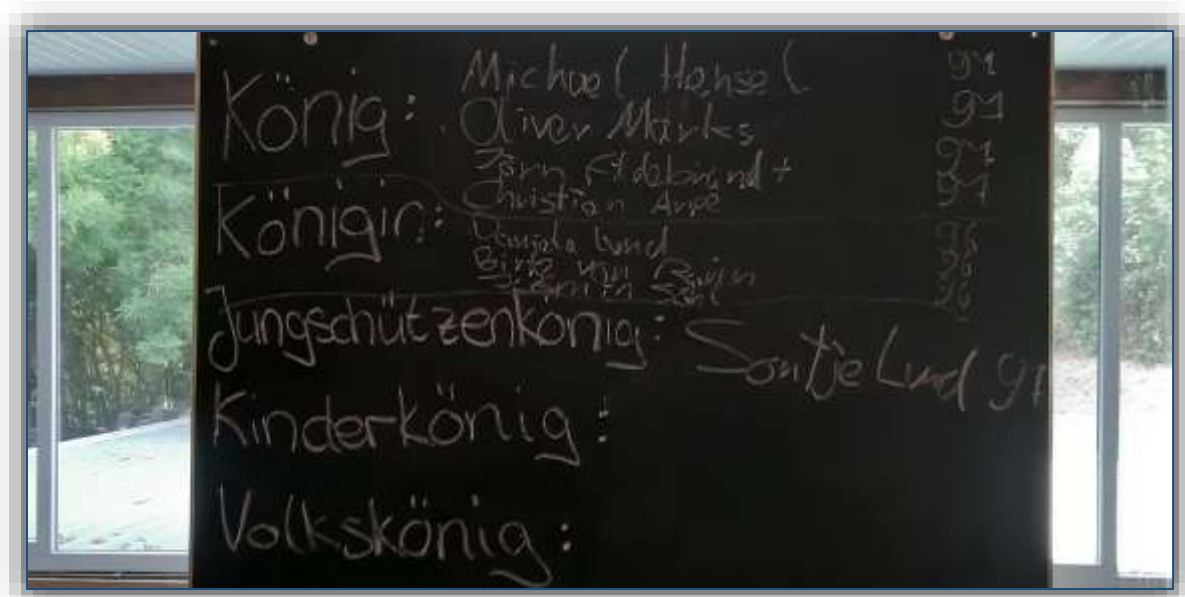 König: Michael Hensel 91
Oliver Marks 91
Jörn Hildebrandt 91
Christian Arpe 91
Königin: Daniela Lund 96
Birte von 96
96
Jungschützenkönig: Sontje Lund 91
Kinderkönig:
Volkskönig: